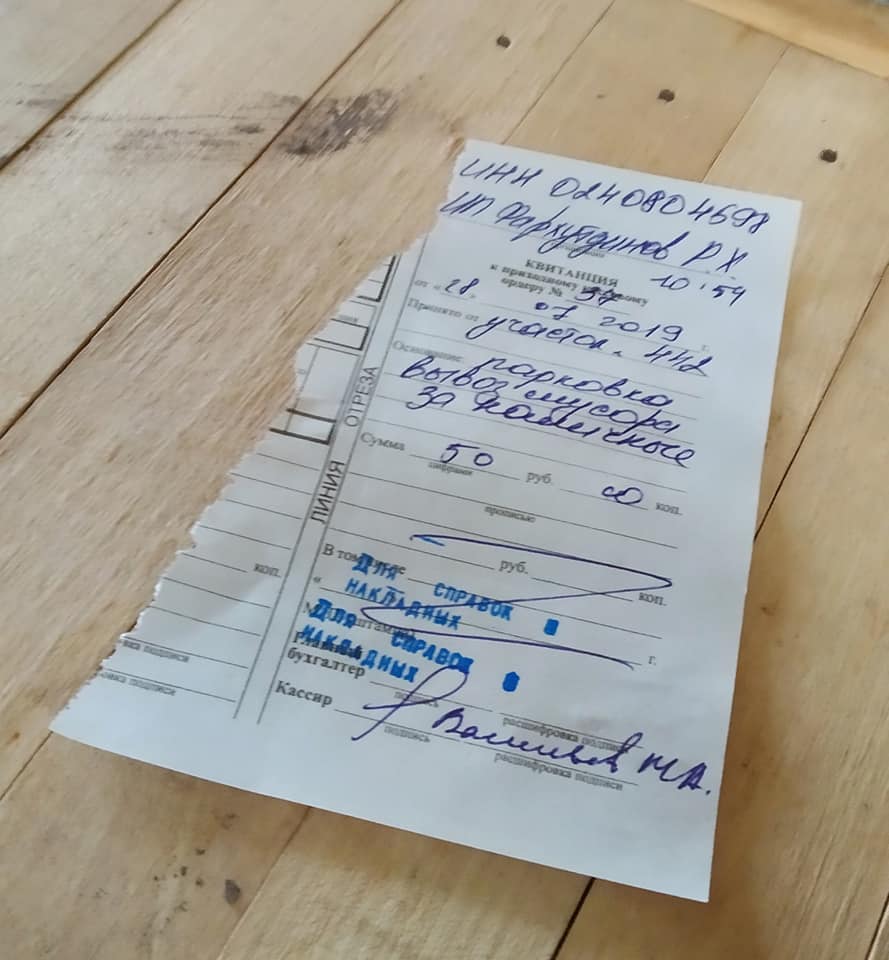 ИНН 0240804698
ИП Фархутдинов Р.Х
КВИТАНЦИЯ
10:54
к приходному кассовому
ордеру №
от «28» 07 2019 г.
Принято от участок. 442
Основание: парковка
вывоз мусора
за наличные
Сумма 50 руб. 00 коп.
цифрами
прописью
руб. коп.
В том числе
ДЛЯ СПРАВОК
НАКЛАДНЫХ
« г.
ДЛЯ СПРАВОК
НАКЛАДНЫХ
Главный
бухгалтер
подпись расшифровка подписи
Кассир Васильев М.А.
подпись расшифровка подписи
ЛИНИЯ ОТРЕЗА
коп.
вка подписи
овка подписи